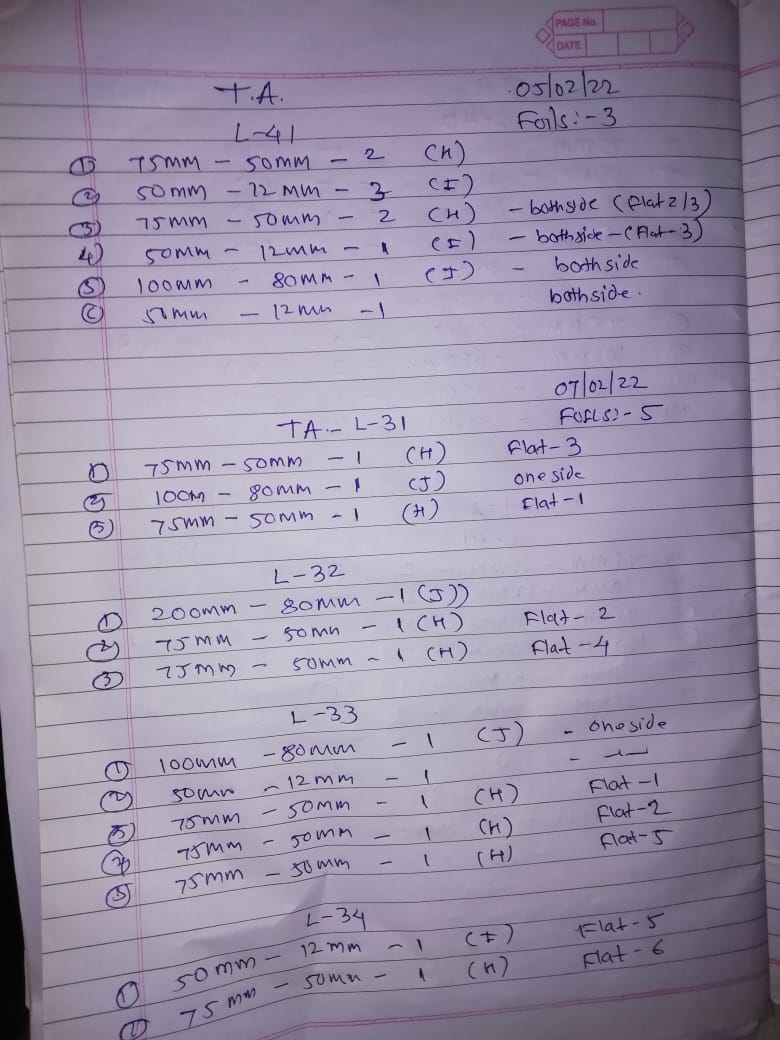 PAGE No.
DATE
T.A. 05/02/22
L-41 Foils:-3
① 75mm - 50mm - 2 (H)
② 50mm - 12mm - 3 (I)
③ 75mm - 50mm - 2 (H) - bothside (Flat 2/3)
4) 50mm - 12mm - 1 (I) - bothside - (Flat-3)
⑤ 100mm - 80mm - 1 (J) - bothside
50mm - 12mm - 1 bothside.
07/02/22
TA - L-31 Foils:-5
① 75mm - 50mm - 1 (H) Flat-3
② 100m - 80mm - 1 (J) one side
③ 75mm - 50mm - 1 (H) Flat-1
L-32
① 200mm - 80mm - 1 (J))
② 75mm - 50mm - 1 (H) Flat-2
③ 75mm - 50mm - 1 (H) Flat-4
L-33
① 100mm - 80mm - 1 (J) - oneside
② 50mm - 12mm - 1 - -11-
③ 75mm - 50mm - 1 (H) Flat-1
75mm - 50mm - 1 (H) Flat-2
⑤ 75mm - 50mm - 1 (H) Flat-5
L-34
① 50mm - 12mm - 1 (I) Flat-5
75mm - 50mm - 1 (H) Flat-6